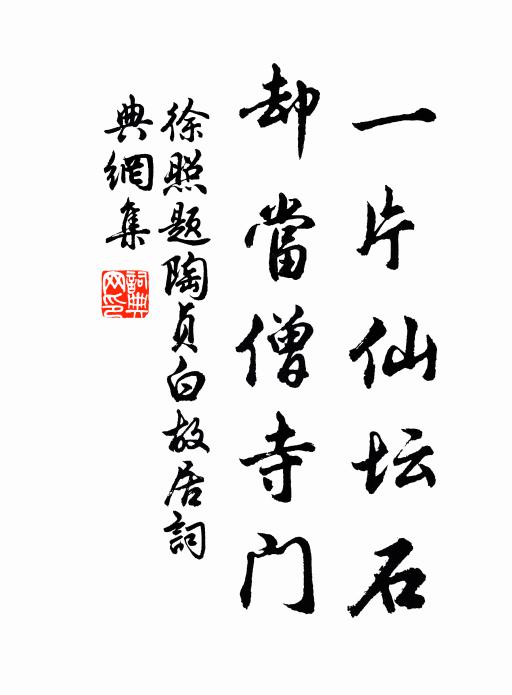 一片仙坛石
却當僧寺門
徐照题陶貞白故居詞
典網集
詞典网印